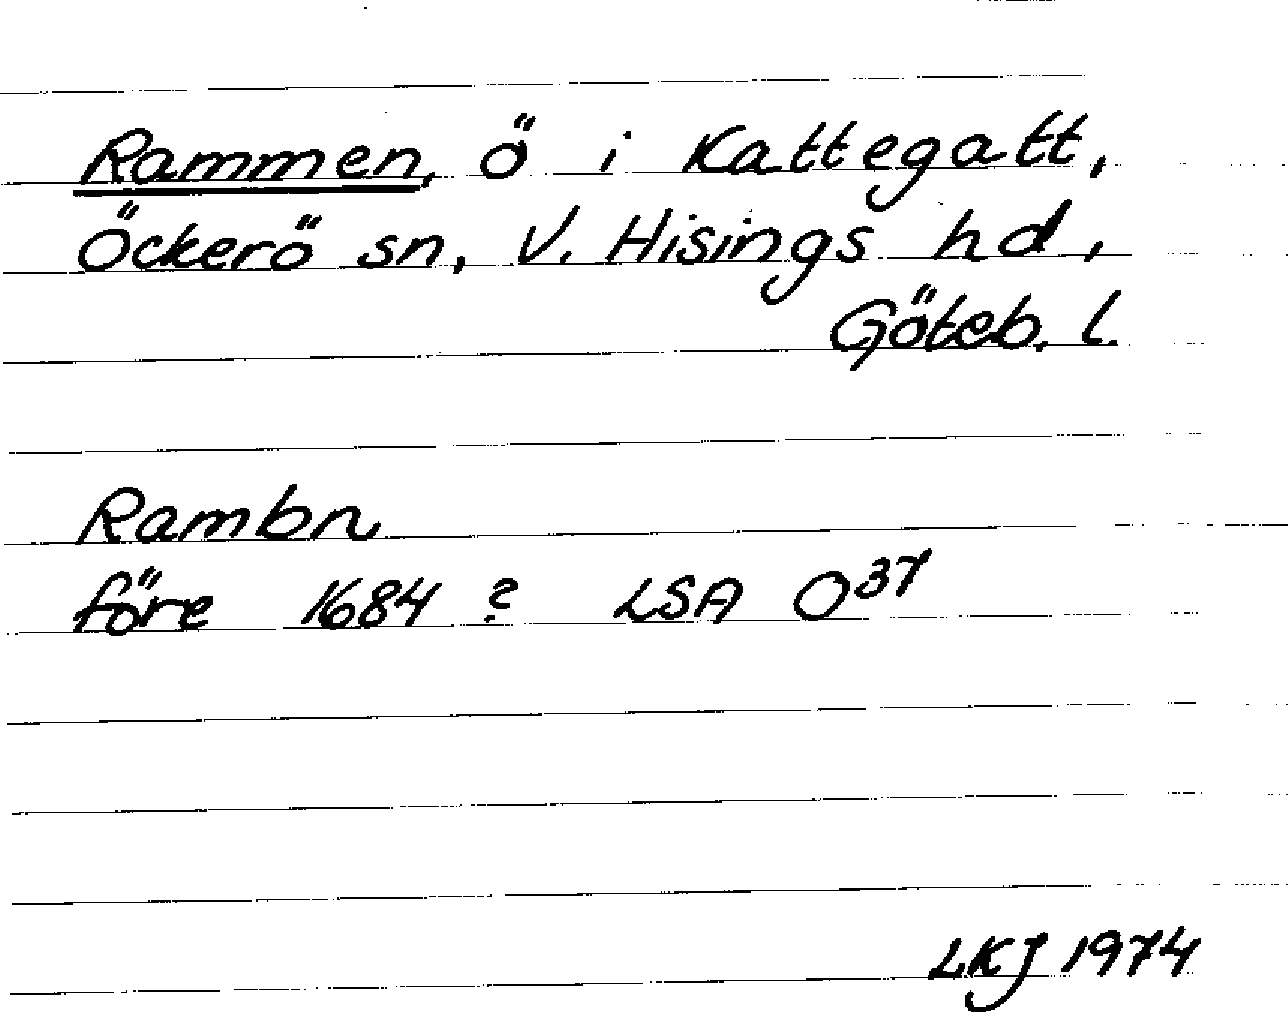 Rammen, ö i Kattegatt,
Öckerö sn, V. Hisings hd,
Göteb. l.
Rambn
före 1684 ? LSA O³⁷
LKJ 1974